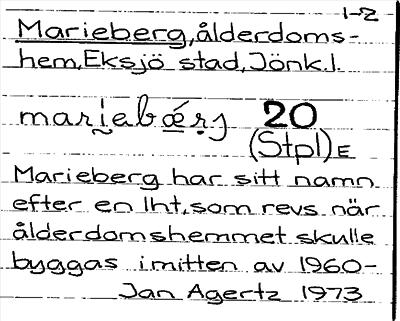 1-2
Marieberg, ålderdoms-
hem, Eksjö stad, Jönk.l.
mari̯ebǽr̥j 20
(Stpl) E
Marieberg har sitt namn
efter en lht, som revs när
ålderdomshemmet skulle
byggas i mitten av 1960-
Jan Agertz 1973